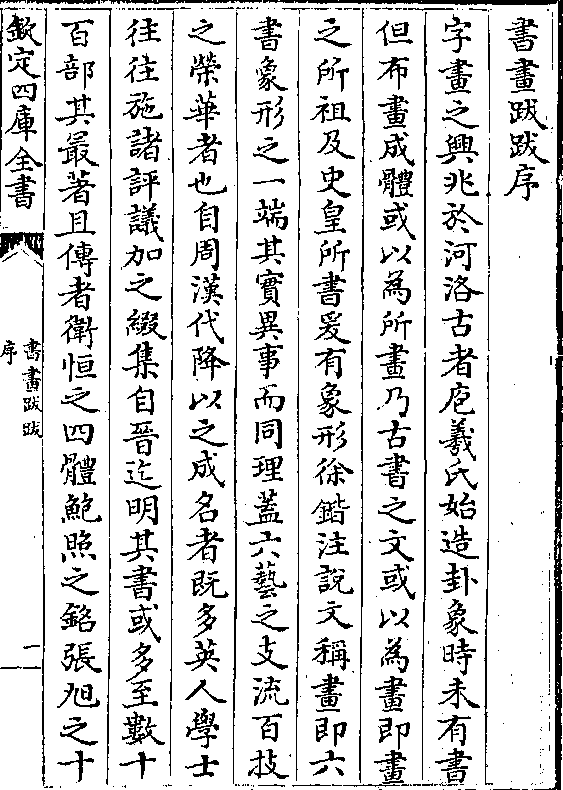 書畫跋跋序
字畫之興兆於河洛古者庖羲氏始造卦象時未有書
但布畫成體或以為所畫乃古書之文或以為畫即畫
之所祖及史皇所書爰有象形徐鍇注說文稱畫即六
書象形之一端其實異事而同理蓋六藝之支流百技
之榮華者也自周漢代降以之成名者既多英人學士
往往施諸評議加之綴集自晉迄明其書或多至數十
百部其最著且傳者衛恒之四體鮑照之銘張旭之十
欽定四庫全書
書畫跋跋
序
一